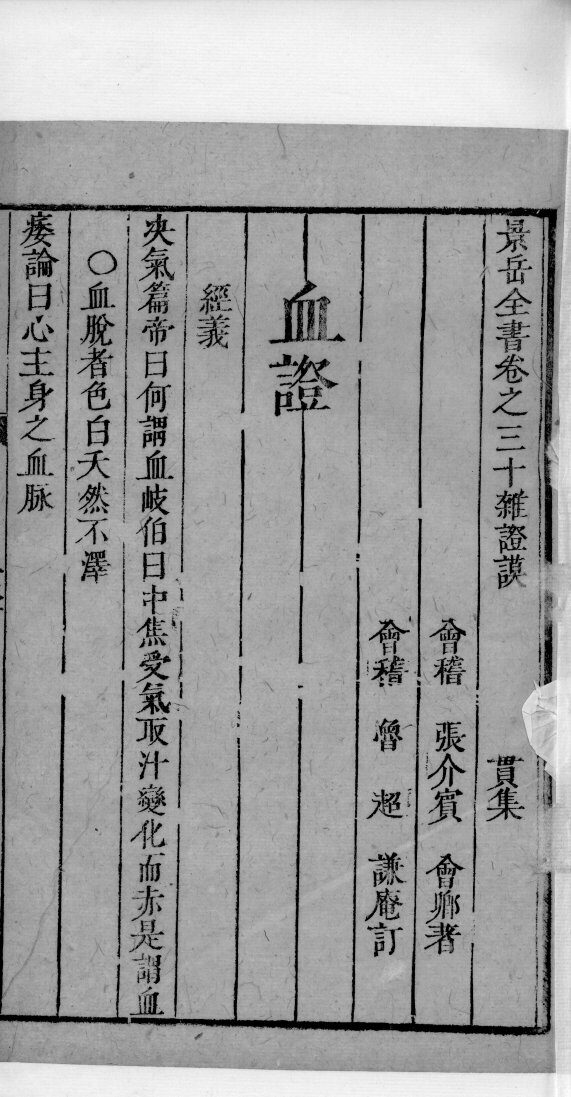 景岳全書卷之三十雜證謨　貫集
會稽　張介賓　會卿著
會稽　魯　超　謙庵訂
血證
經義
決氣篇帝曰何謂血岐伯曰中焦受氣取汁變化而赤是謂血
〇血脫者色白夭然不澤
痿論曰心主身之血脉